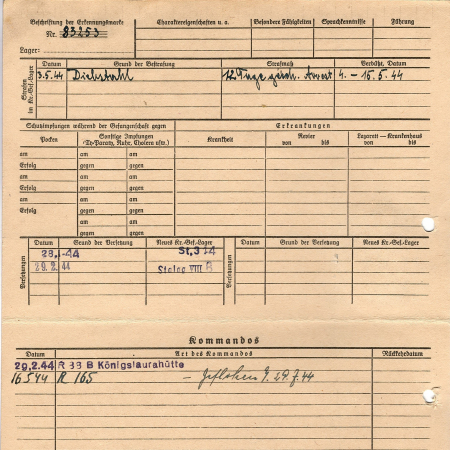 Beschriftung der Erkennungsmarke Charaktereigenschaften u. a. Besondere Fähigkeiten Sprachkenntnisse Führung
Nr. 83253
Lager:
Strafen im Kr.-Gef.-Lager Datum Grund der Bestrafung Strafmaß Verbüßt, Datum
3.5.44 Diebstahl 12 Tage gesch. Arrest 4. – 16.5.44
Schutzimpfungen während der Gefangenschaft gegen Erkrankungen
Pocken Sonstige Impfungen (Ty-Paraty, Ruhr, Cholera usw.) Krankheit Revier von bis Lazarett — Krankenhaus von bis
am am
gegen
Erfolg am
gegen
am am
Erfolg gegen
am am
Erfolg gegen
am
gegen
am
gegen
Versetzungen Datum Grund der Versetzung Neues Kr.-Gef.-Lager Versetzungen Datum Grund der Versetzung Neues Kr.-Gef.-Lager
44
29.2.44 Stalag VIII B
Kommandos
Datum Art des Kommandos Rückkehrdatum
29.2.44 R 33 B Königslaurahütte
16544 R 165 – Geflohen 29.7.44